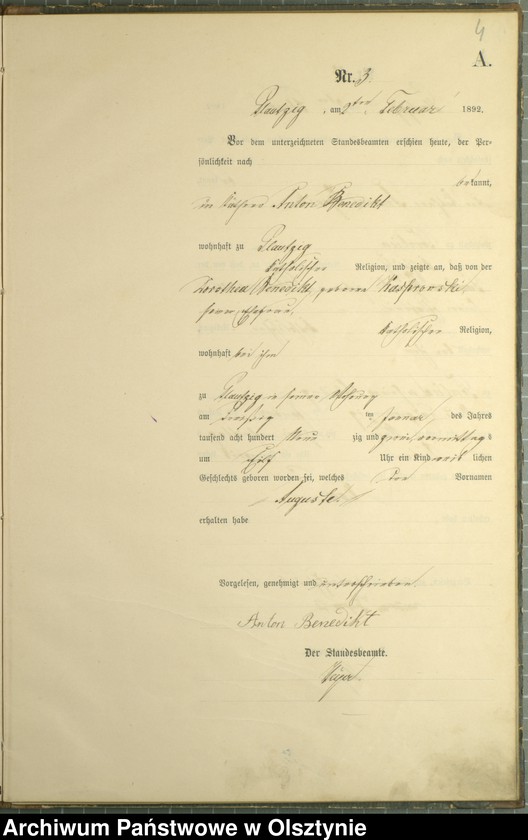 4
A.
Nr. 3
Plautzig, am 2ten Februar 1892.
Vor dem unterzeichneten Standesbeamten erschien heute, der Per-
sönlichkeit nach
bekannt,
Anton Benedikt
wohnhaft zu Plautzig
katholischer Religion, und zeigte an, daß von der
Dorothea Benedikt, geborene
seiner Ehefrau
katholischer Religion,
wohnhaft bei ihm
zu Plautzig in seiner Wohnung
am dreißig ten Januar des Jahres
tausend acht hundert Neun zig und zwei vormittags
um Uhr ein Kind weib lichen
Geschlechts geboren worden sei, welches den Vornamen
Auguste
erhalten habe
Vorgelesen, genehmigt und unterschrieben.
Anton Benedikt
Der Standesbeamte.
Archiwum Państwowe w Olsztynie